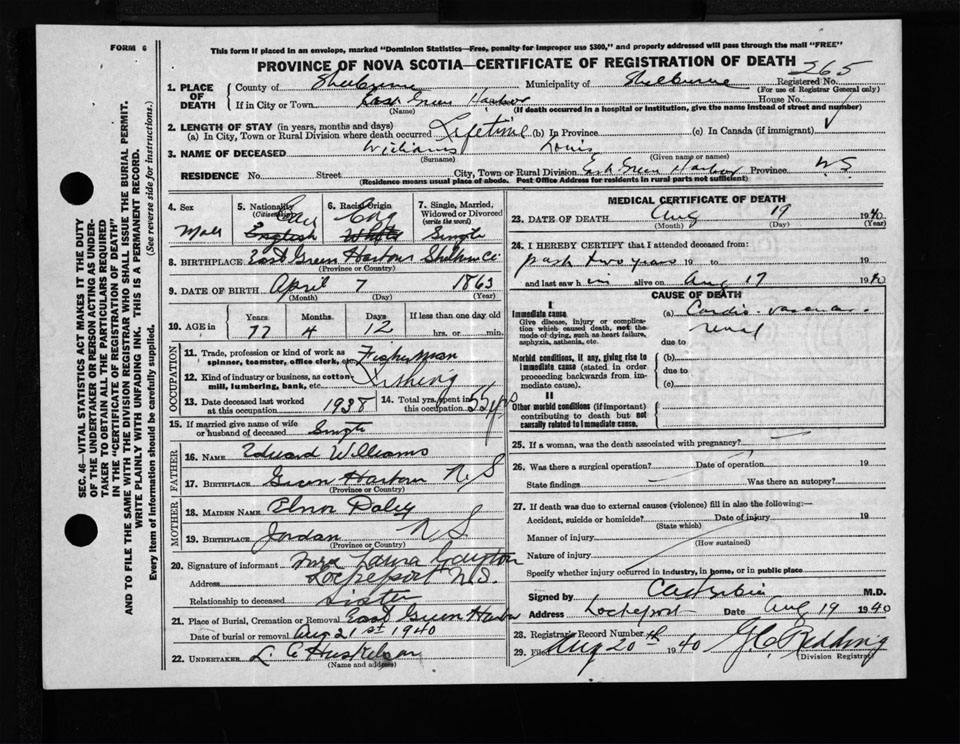 FORM 6
This form if placed in an envelope, marked "Dominion Statistics—Free, penalty for improper use $300," and properly addressed will pass through the mail "FREE"
PROVINCE OF NOVA SCOTIA—CERTIFICATE OF REGISTRATION OF DEATH 365
1. PLACE OF DEATH County of Shelburne Municipality of Shelburne Registered No.
(For use of Registrar General only)
If in City or Town East Green Harbour House No.
(Name) (If death occurred in a hospital or institution, give the name instead of street and number)
2. LENGTH OF STAY (in years, months and days)
(a) In City, Town or Rural Division where death occurred Lifetime (b) In Province (c) In Canada (if immigrant)
3. NAME OF DECEASED Williams Louis
(Surname) (Given name or names)
RESIDENCE No. Street City, Town or Rural Division East Green Harbour Province N S
(Residence means usual place of abode. Post Office Address for residents in rural parts not sufficient)
4. Sex Male
5. Nationality (Citizenship) English
6. Racial Origin White
7. Single, Married, Widowed or Divorced (write the word) Single
8. BIRTHPLACE East Green Harbour Shelburne Co
(Province or Country)
9. DATE OF BIRTH April 7 1863
(Month) (Day) (Year)
10. AGE in Years Months Days If less than one day old
77 4 12 hrs. or min.
OCCUPATION
11. Trade, profession or kind of work as spinner, teamster, office clerk, etc. Fisherman
12. Kind of industry or business, as cotton mill, lumbering, bank, etc. Fishing
13. Date deceased last worked at this occupation 1938
14. Total yrs. spent in this occupation 55 yrs
15. If married give name of wife or husband of deceased Single
FATHER
16. NAME Edward Williams
17. BIRTHPLACE Green Harbour N S
(Province or Country)
MOTHER
18. MAIDEN NAME Elnor Daley
19. BIRTHPLACE Jordan N S
(Province or Country)
20. Signature of informant Mrs Laura
Address Lockeport N.S.
Relationship to deceased Sister
21. Place of Burial, Cremation or Removal East Green Harbour
Date of burial or removal Aug 21st 1940
22. UNDERTAKER L. C. Huskilson
(Name and address)
MEDICAL CERTIFICATE OF DEATH
23. DATE OF DEATH Aug 19 1940
(Month) (Day) (Year)
24. I HEREBY CERTIFY that I attended deceased from:
past two years 19 to 19
and last saw him alive on Aug 17 1940
CAUSE OF DEATH
I
Immediate cause
Give disease, injury or complication which caused death, not the mode of dying, such as heart failure, asphyxia, asthenia, etc.
(a) Cardio-vascular-
renal
due to
Morbid conditions, if any, giving rise to immediate cause (stated in order proceeding backwards from immediate cause).
(b)
due to
(c)
II
Other morbid conditions (if important) contributing to death but not causally related to immediate cause.
25. If a woman, was the death associated with pregnancy?
26. Was there a surgical operation? Date of operation 19
State findings Was there an autopsy?
27. If death was due to external causes (violence) fill in also the following:—
Accident, suicide or homicide? Date of injury 19
(State which)
Manner of injury
(How sustained)
Nature of injury
Specify whether injury occurred in industry, in home, or in public place
Signed by M.D.
Address Lockeport Date Aug 19 1940
28. Registrar's Record Number
29. Filed Aug 20th 1940 G.C. Redding
(Division Registrar)
SEC. 46—VITAL STATISTICS ACT MAKES IT THE DUTY
OF THE UNDERTAKER OR PERSON ACTING AS UNDER-
TAKER TO OBTAIN ALL THE PARTICULARS REQUIRED
IN THE "CERTIFICATE OF REGISTRATION OF DEATH"
AND TO FILE THE SAME WITH THE DIVISION REGISTRAR WHO SHALL ISSUE THE BURIAL PERMIT.
WRITE PLAINLY WITH UNFADING INK. THIS IS A PERMANENT RECORD.
Every item of information should be carefully supplied. (See reverse side for instructions.)